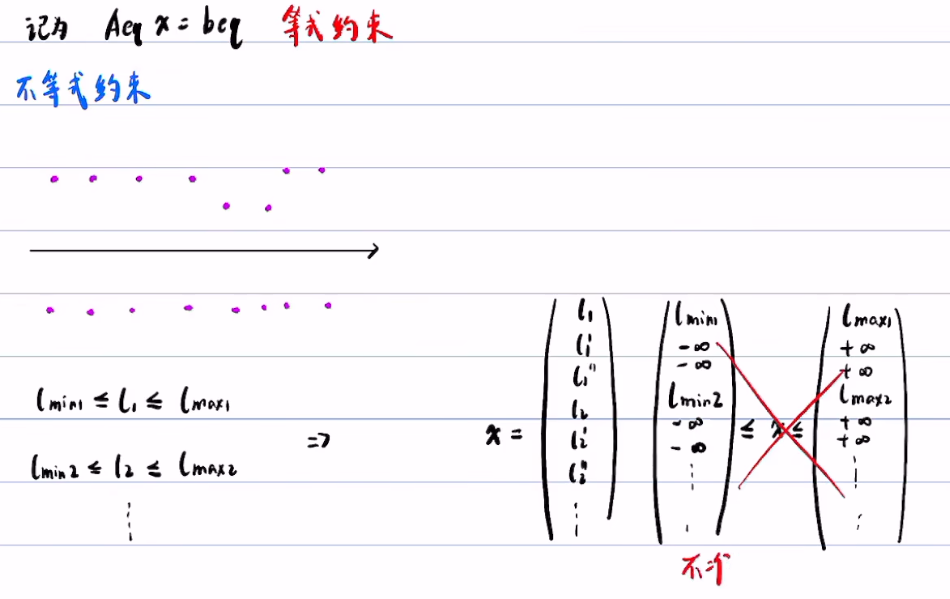 记为 Aeq x = beq 等式约束
不等式约束
lmin1 ≤ l1 ≤ lmax1
lmin2 ≤ l2 ≤ lmax2
⋮
⇒
x = (l1 l1' l1'' l2 l2' l2'' ⋮)
(lmin1 -∞ -∞ lmin2 -∞ -∞ ⋮) ≤ x ≤ (lmax1 +∞ +∞ lmax2 +∞ +∞ ⋮)
不